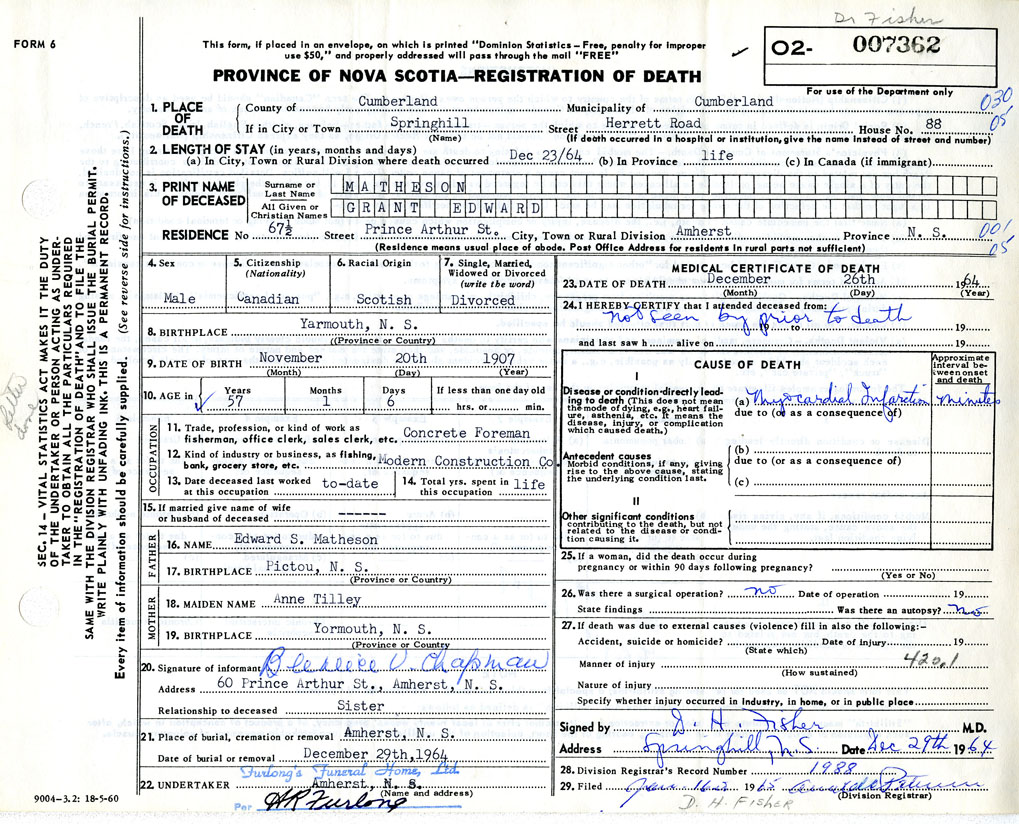 Dr Fisher
FORM 6
This form, if placed in an envelope, on which is printed "Dominion Statistics – Free, penalty for improper
use $50," and properly addressed will pass through the mail "FREE"
02- 007362
PROVINCE OF NOVA SCOTIA—REGISTRATION OF DEATH
For use of the Department only
030
05
1. PLACE OF DEATH
County of Cumberland Municipality of Cumberland
If in City or Town Springhill Street Herrett Road House No. 88
(Name) (If death occurred in a hospital or institution, give the name instead of street and number)
2. LENGTH OF STAY (in years, months and days)
(a) In City, Town or Rural Division where death occurred Dec 23/64 (b) In Province life (c) In Canada (if immigrant)
3. PRINT NAME OF DECEASED
Surname or Last Name MATHESON
All Given or Christian Names GRANT EDWARD
RESIDENCE No 67½ Street Prince Arthur St. City, Town or Rural Division Amherst Province N. S.
001
05
(Residence means usual place of abode. Post Office Address for residents in rural parts not sufficient)
4. Sex
Male
5. Citizenship
(Nationality)
Canadian
6. Racial Origin
Scotish
7. Single, Married,
Widowed or Divorced
(write the word)
Divorced
8. BIRTHPLACE Yarmouth, N. S.
((Province or Country)
9. DATE OF BIRTH November 20th 1907
(Month) (Day) (Year)
10. AGE in Years 57 Months 1 Days 6 If less than one day old
hrs. or min.
OCCUPATION
11. Trade, profession, or kind of work as
fisherman, office clerk, sales clerk, etc. Concrete Foreman
12. Kind of industry or business, as fishing,
bank, grocery store, etc. Modern Construction Co.
13. Date deceased last worked
at this occupation to-date
14. Total yrs. spent in
this occupation life
15. If married give name of wife
or husband of deceased ------
FATHER
16. NAME Edward S. Matheson
17. BIRTHPLACE Pictou, N. S.
(Province or Country)
MOTHER
18. MAIDEN NAME Anne Tilley
19. BIRTHPLACE Yormouth, N. S.
(Province or Country
20. Signature of informant V. Chapman
Address 60 Prince Arthur St., Amherst, N. S.
Relationship to deceased Sister
21. Place of burial, cremation or removal Amherst, N. S.
Date of burial or removal December 29th, 1964
Furlong's Funeral Home, Ltd.
22. UNDERTAKER Amherst, N. S.
(Name and address)
Per HR Furlong
9004–3.2: 18-5-60
MEDICAL CERTIFICATE OF DEATH
23. DATE OF DEATH December 26th 1964
(Month) (Day) (Year)
24. I HEREBY CERTIFY that I attended deceased from:
not seen by prior to death
19 to 19
and last saw h alive on 19
CAUSE OF DEATH
Approximate
interval be-
tween onset
and death
I
Disease or condition directly lead-
ing to death (This does not mean
the mode of dying, e.g., heart fail-
ure, asthenia, etc. It means the
disease, injury, or complication
which caused death.)
(a) Myocardial Infarction minutes
due to (or as a consequence of)
Antecedent causes
Morbid conditions, if any, giving
rise to the above cause, stating
the underlying condition last.
(b)
due to (or as a consequence of)
(c)
II
Other significant conditions
contributing to the death, but not
related to the disease or condi-
tion causing it.
25. If a woman, did the death occur during
pregnancy or within 90 days following pregnancy?
(Yes or No)
26. Was there a surgical operation? no Date of operation 19
State findings Was there an autopsy? No
27. If death was due to external causes (violence) fill in also the following:—
Accident, suicide or homicide? Date of injury 19
(State which)
420.1
Manner of injury
(How sustained)
Nature of injury
Specify whether injury occurred in industry, in home, or in public place
Signed by D. H. Fisher M.D.
Address Springhill N.S. Date Dec 29th 1964
28. Division Registrar's Record Number 1988
29. Filed 1965
(Division Registrar)
D. H. FISHER
SEC. 14 – VITAL STATISTICS ACT MAKES IT THE DUTY
OF THE UNDERTAKER OR PERSON ACTING AS UNDER-
TAKER TO OBTAIN ALL THE PARTICULARS REQUIRED
IN THE "REGISTRATION OF DEATH" AND TO FILE THE
SAME WITH THE DIVISION REGISTRAR WHO SHALL ISSUE THE BURIAL PERMIT.
WRITE PLAINLY WITH UNFADING INK. THIS IS A PERMANENT RECORD.
Every item of information should be carefully supplied. (See reverse side for instructions.)